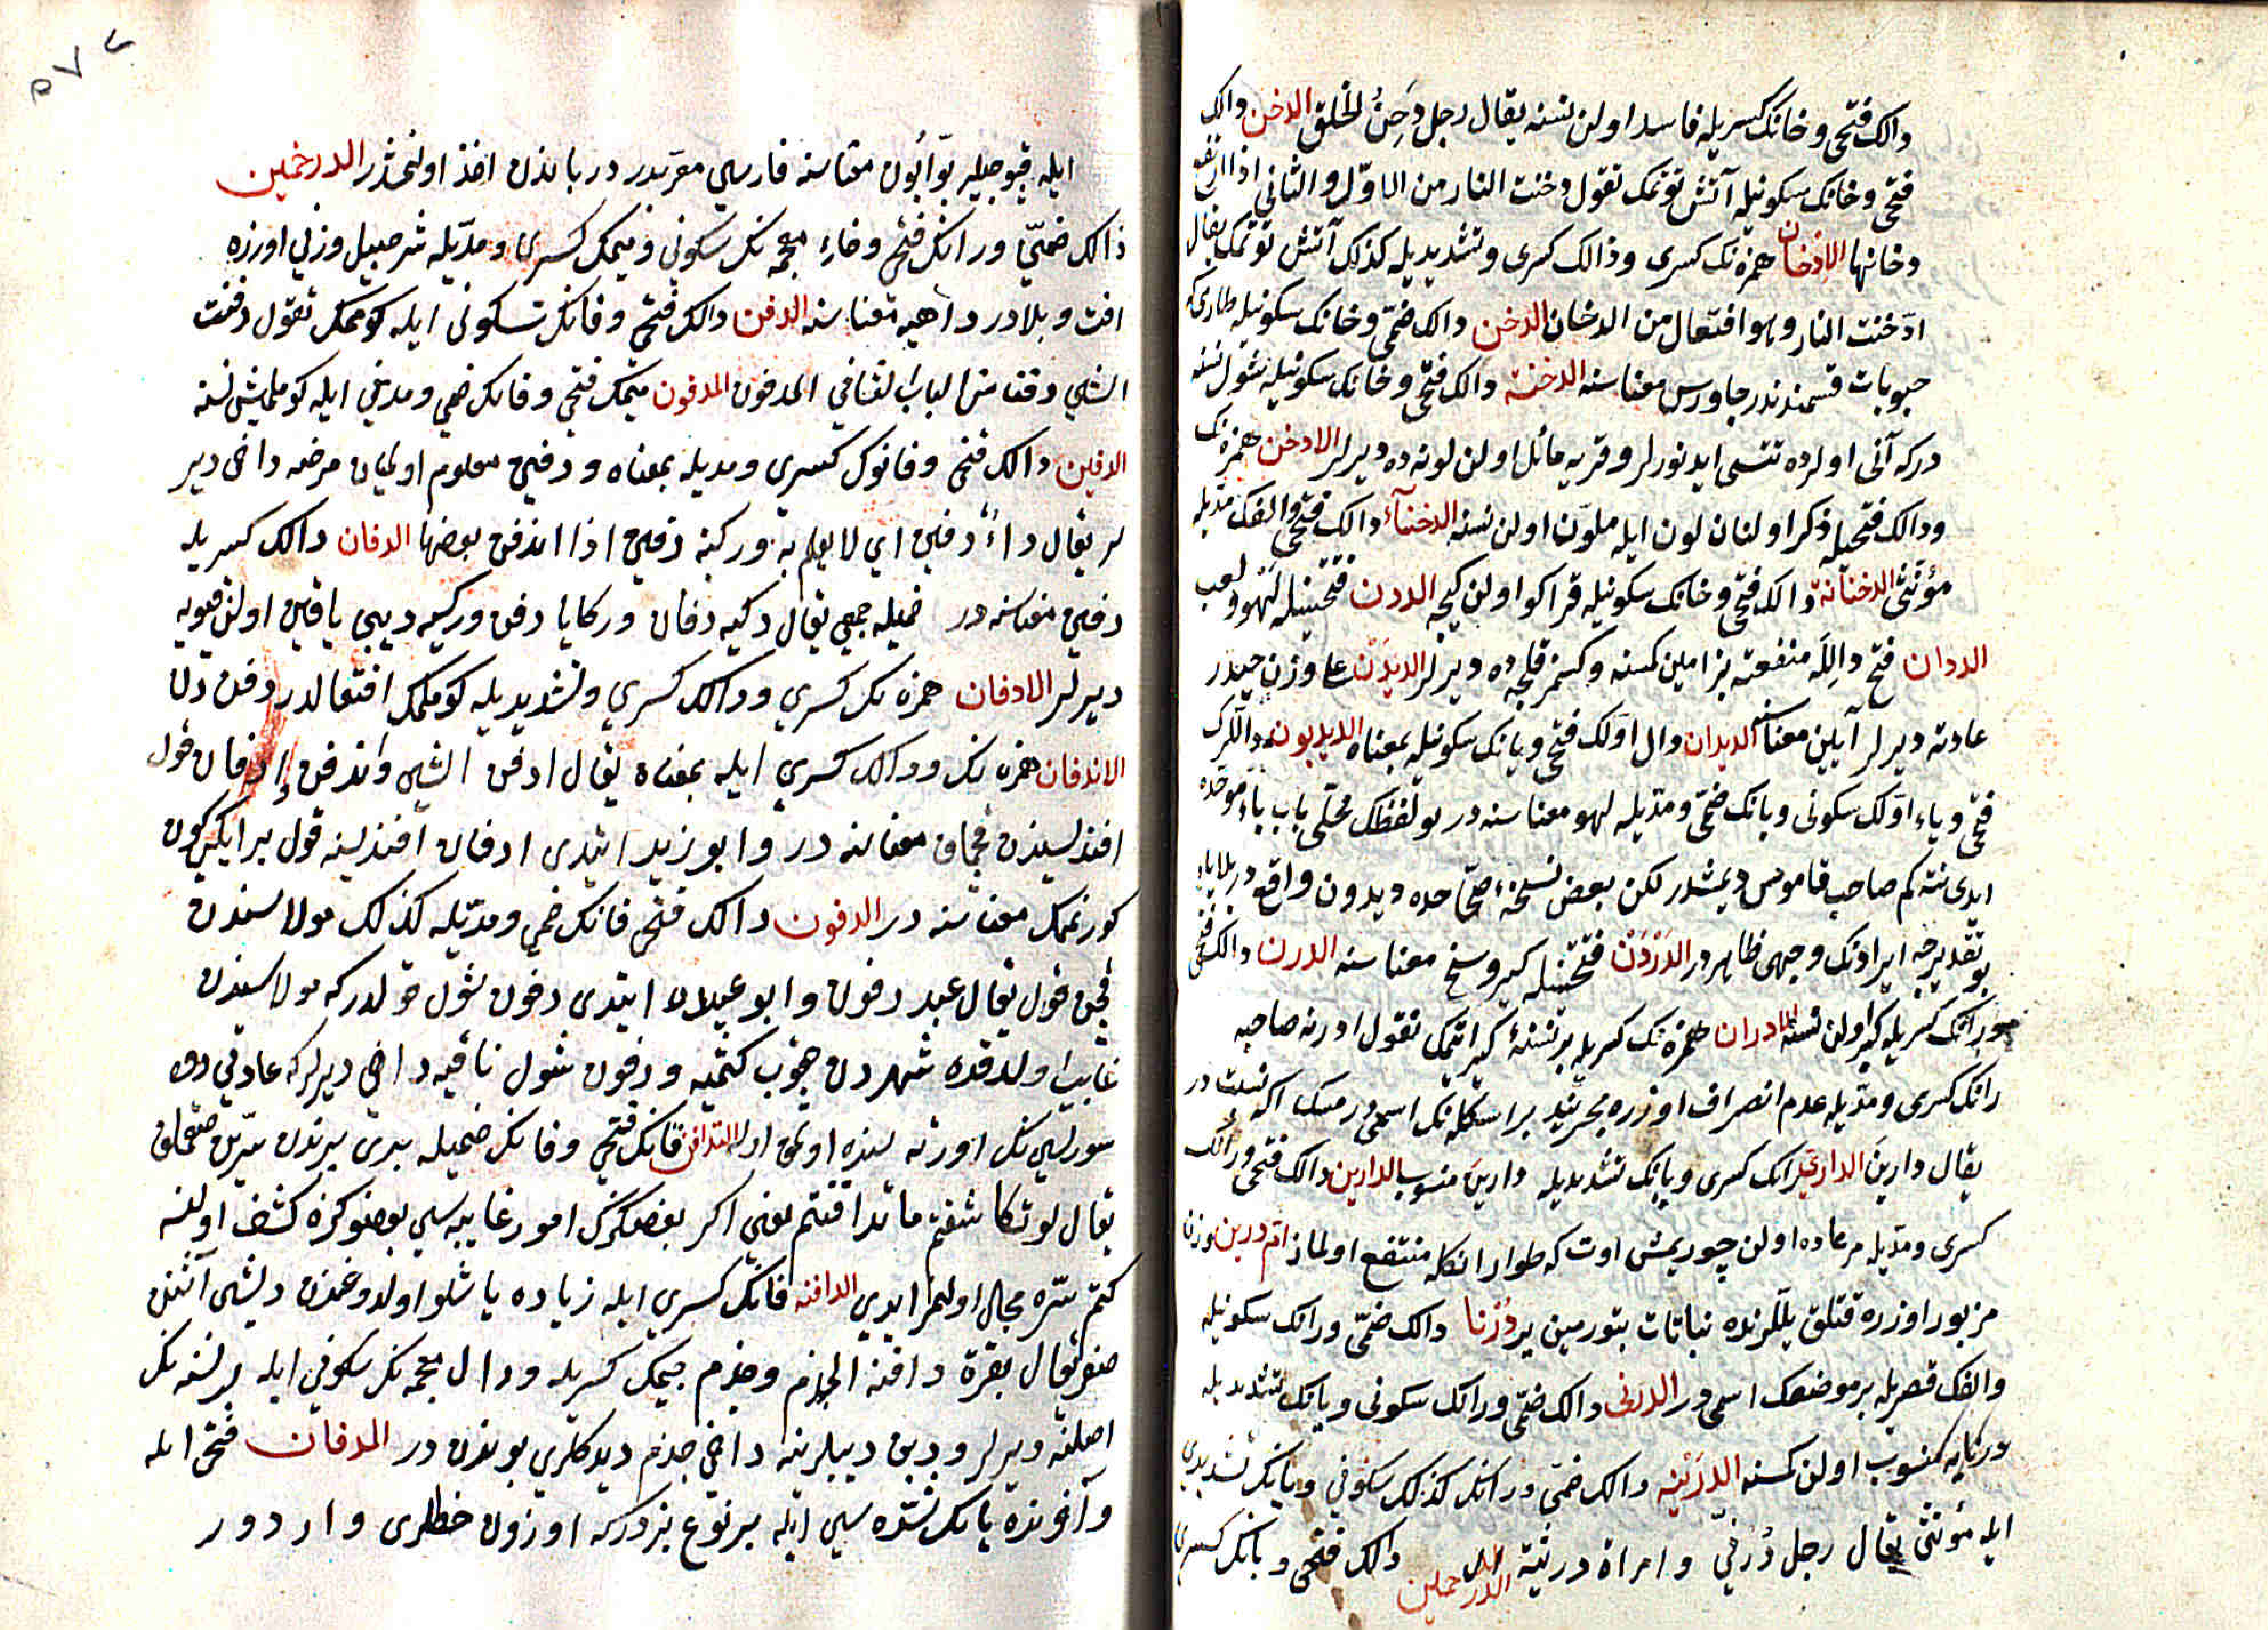 دالك فتحى وخانك كسريله فاسد اولن نسنه يقال رجل دَخِنُ الخلق الدخن دالك
فتحى وخانك سكونيله آتش توتمك تقول دخنت النار من الاوّل والثانى اذا ارتفع
دخانها الاِدّخان همزه نك كسرى ودالك كسرى وتشديديله كذلك آتش توتمك يقال
ادّخنت النار وهو افتعال من الدخان الدخن دالك ضمّى وخانك سكونيله طارى كه
حبوبات قسمندندر جاورس معناسنه الدخنة دالك فتحى وخانك سكونيله شول نسنه
دركه آنى اولرده تتسى ايدنورلر وقريه مائل اولن لونه ده ديرلر الادخن همزه نك
ودالك فتحيله ذكر اولنان لون ايله ملوّن اولن نسنه الدخنآء دالك فتحى والفك مدّيله
مؤنثى الدخنانة دالك فتحى وخانك سكونيله قراكو اولن كيجه الددن فتحتينله لهو ولعب
الددان فتح دالِلَه منفعته يرامين كسنه وكسمز قلجه ده ديرلر الديدَنْ على وزن حيدر
عادته ديرلر آيين معناسنه الديدان دال اوّلك فتحى ويانك سكونيله بمعناه الديدبون دالك
فتحى وياء اوّلك سكونى وبانك ضمّى ومدّيله لهو معناسنه در بو لفظك محلّى باب باء موحّده
ايدى نته كم صاحب قاموس ديمشدر لكن بعض نسخهٔ صحّاحده ديدون واقع در بلا باء
بو تقديرجه ايرادنك وجهى ظاهردر الدَرَن فتحتينله كير وسخ معناسنه الدرن دالك فتحى
ورانك كسريله كيرلو اولن نسنه الادران همزه نك كسريله بر نسنهٔ كيرلتمك تقول ادرنه صاحبه
رانك كسرى ومدّيله عدم انصراف اوزره بحرينده بر اسكله نك اسمى در مسك اكه نسبت در
يقال دارين الدارىّ رانك كسرى ويانك تشديديله دارينَ منسوب الدارين دالك فتحى ورانك
كسرى ومدّيله مرعاده اولن چوريمش اوت كه طوار انكله منتفع اولماز ام درين وزن
مزبور اوزره قتلق يللرنده نباتات بتورمين ير دُرْنا دالك ضمّى ورانك سكونيله
والفك قصريله بر موضعك اسمى در الدرنى دالك ضمّى ورانك سكونى ويانك تشديديله
درنايه منسوب اولن كسنه الدرنيّه دالك ضمّى ورانك كذلك سكونى ويانك تشديدى
ايله مؤنثى يقال رجل دُرْنىّ وامراة درنية الدرحمين دالك فتحى وبانك كسرى
ايله قپوجيلر بوّابُون معناسنه فارسي معرّبدر درباندن اخذ اولنمشدر الدرخمين
دالك ضمّى ورانك فتحى وخاء معجمه نك سكونى وميمك كسرى ومدّيله شرحبيل وزنى اوزره
افت وبلادر داهيه معناسنه الدفن دالك فتحى وفانك سكونى ايله كوممك تقول دفنت
الشئ دفنا من الباب الثانى المدفون المدفون ميمك فتحى وفانك ضمى ومدّى ايله كوملمش نسنه
الدفين دالك فتحى وفانوك كسرى ومديله بمعناه ودفين معلوم اولميان مرضه داخى دير
لر يقال داءٌ دفين اي لا يعلم به وركية دفين اذا اندفن بعضها الدفان دالك كسريله
دفين معناسنه در ضميله جمعى يقال ركيه دفان وركايا دفن وركيه ديبى ياقين اولن قيويه
ديرلر الادفان همزه نك كسري ودالك كسري وتشديديله كوملمك افتعالدر دفن دن
الاندفان همزه نك ودالك كسري ايله بمعناه يقال ادفن الشئ واندفن إدفان قول
افنديسندن قچماق معناسنه در وابو زيد ايتدى ادفان افنديسنه قول بر ايكى كون
كورنمك معناسنه در الدفون دالك فتحى فانك ضمى ومدّيله كذلك مولاسندن
قچن قول يقال عبد دفون وابو عبيده ايتدى دفون شول قولدر كه مولاسندن
غايب اولدقده شهردن چقوب كتميه ودفون شول ناقيه داخى ديرلر كه عادتي دوه
سورلسي نك اورته لرنده اولمق اوله التدافن فانك فتحي وفانك ضميله برى برندن سرّين صقلمق
يقال لو تكاشفتم ما تدافنتم يعنى اكر بعضكزك امور غايبه سى بعضوكزه كشف اولنسه
كتم سرّه مجال اولمز ايدي الدافنه فانك كسري ايله زياده ياشلو اولدوغندن ديشى آشنن
صغر يقال بقرة دافنة الجذم وجذم جيمك كسريله وذال معجمه نك سكونى ايله بر نسنه نك
اصلنه ديرلر ودين ديبلرينه داخي جذم ديدكلري بوندن در المدفان فتحى ايله
وآفونده يانك شدّه سي ايله بر نوع بزدركه اوزون خطلرى واردور
٥٧٢